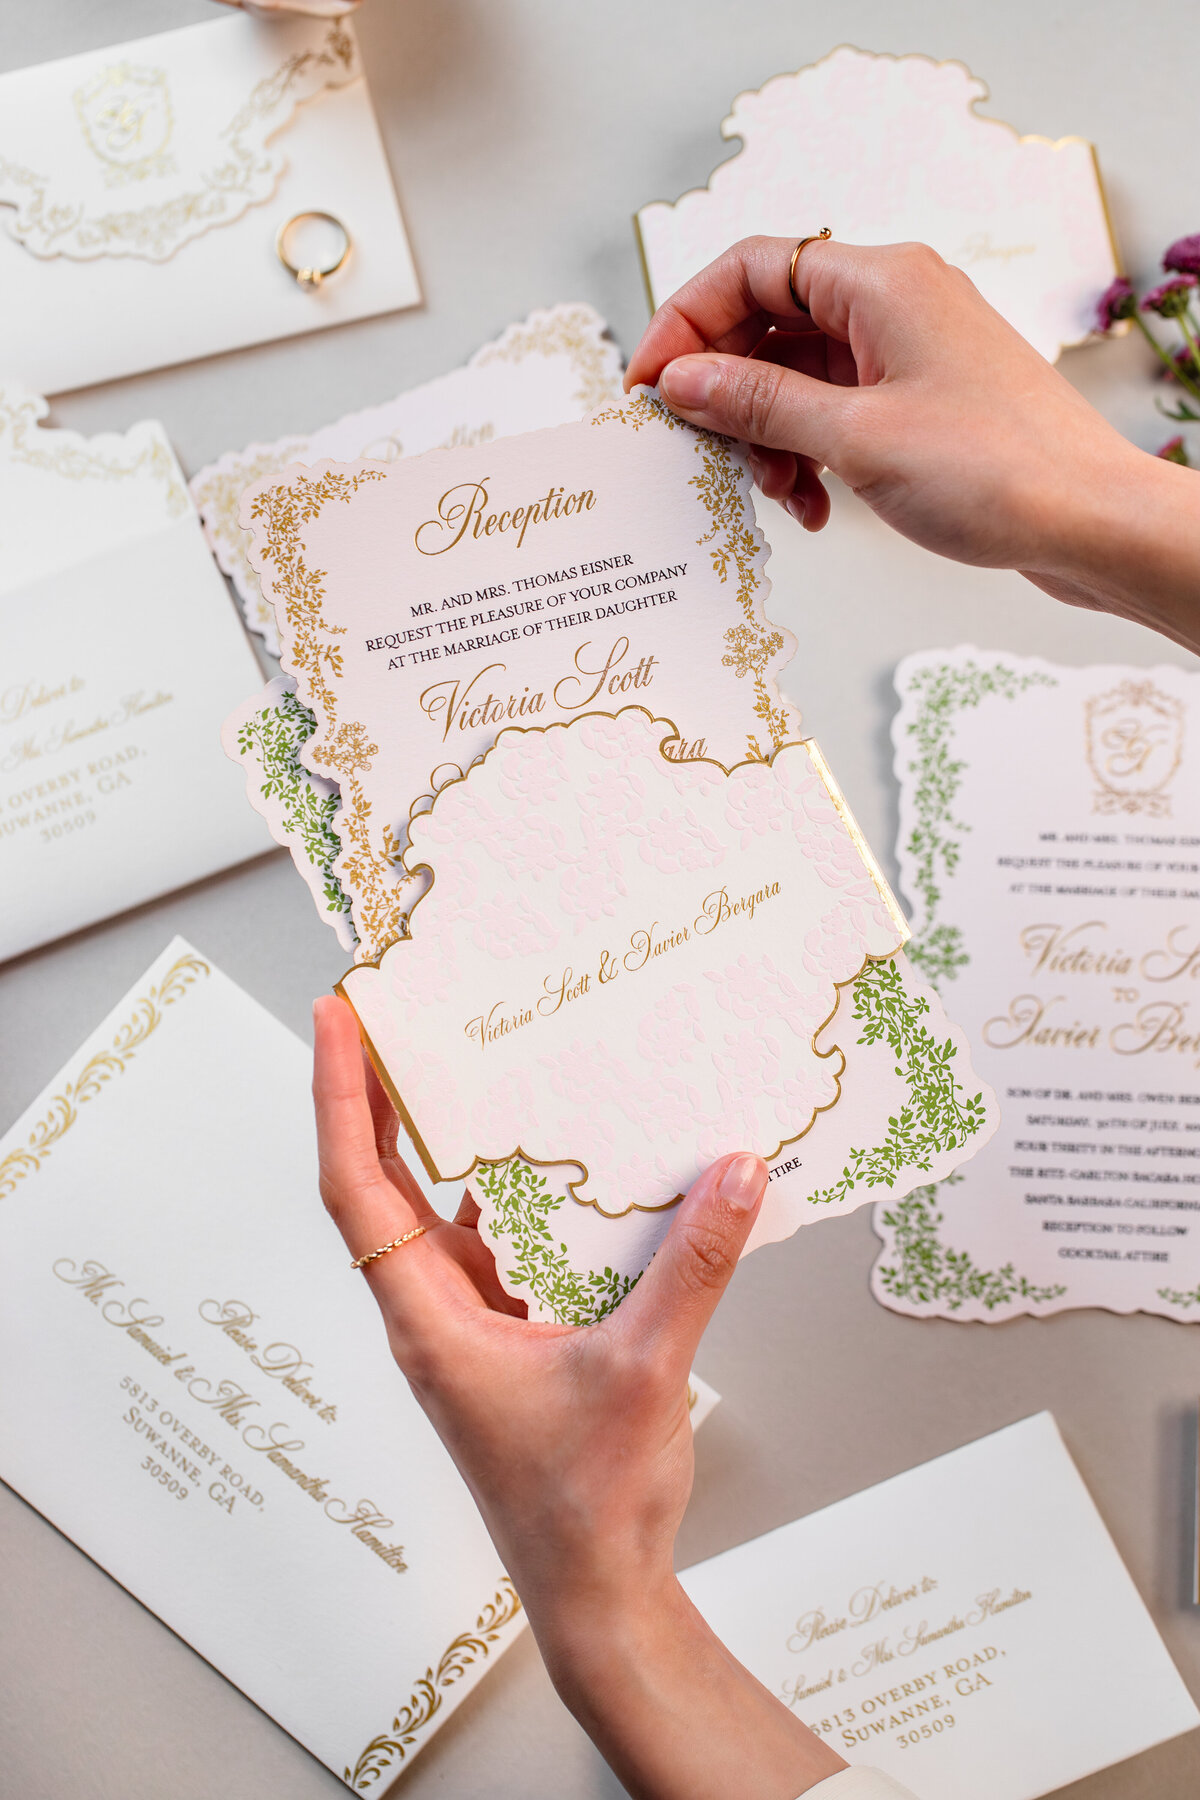 Reception
MR. AND MRS. THOMAS EISNER
REQUEST THE PLEASURE OF YOUR COMPANY
AT THE MARRIAGE OF THEIR DAUGHTER
Victoria Scott
Victoria Scott & Xavier Bergara
Reception
Bergara
MR. AND MRS. THOMAS
REQUEST THE PLEASURE OF YOUR
AT THE MARRIAGE OF THEIR
Victoria
TO
Xavier
SON OF DR. AND MRS. OWEN
SATURDAY, 30TH OF JULY,
FOUR THIRTY IN THE
THE RITZ-CARLTON BACARA
SANTA BARBARA CALIFORNIA
RECEPTION TO FOLLOW
COCKTAIL ATTIRE
Deliver to:
Mrs. Samantha Hamilton
OVERBY ROAD,
SUWANNE, GA
30509
Please Deliver to:
Mr. Samuiel & Mrs. Samantha Hamilton
5813 OVERBY ROAD,
SUWANNE, GA
30509
Please Deliver to:
Samuiel & Mrs. Samantha Hamilton
5813 OVERBY ROAD,
SUWANNE, GA
30509